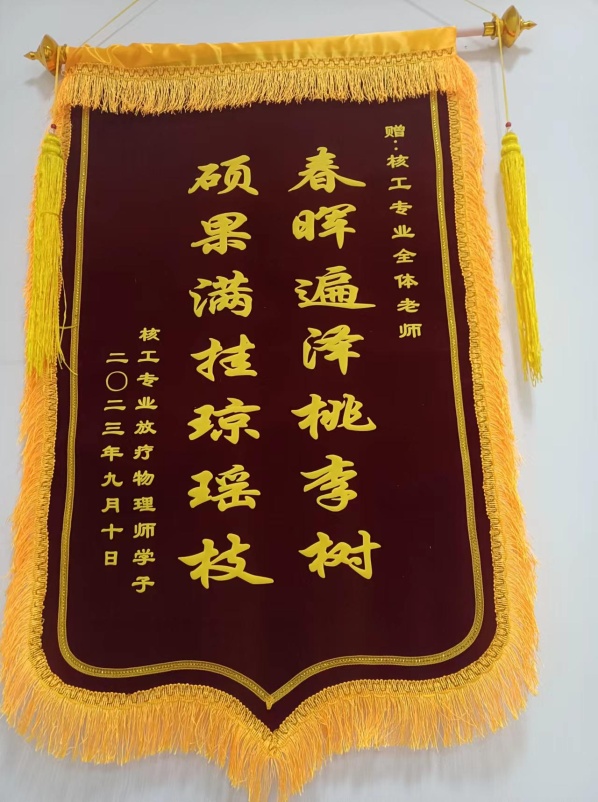 赠:核工专业全体老师
春晖遍泽桃李树
硕果满挂琼瑶枝
核工专业放疗物理师学子
二〇二三年九月十日